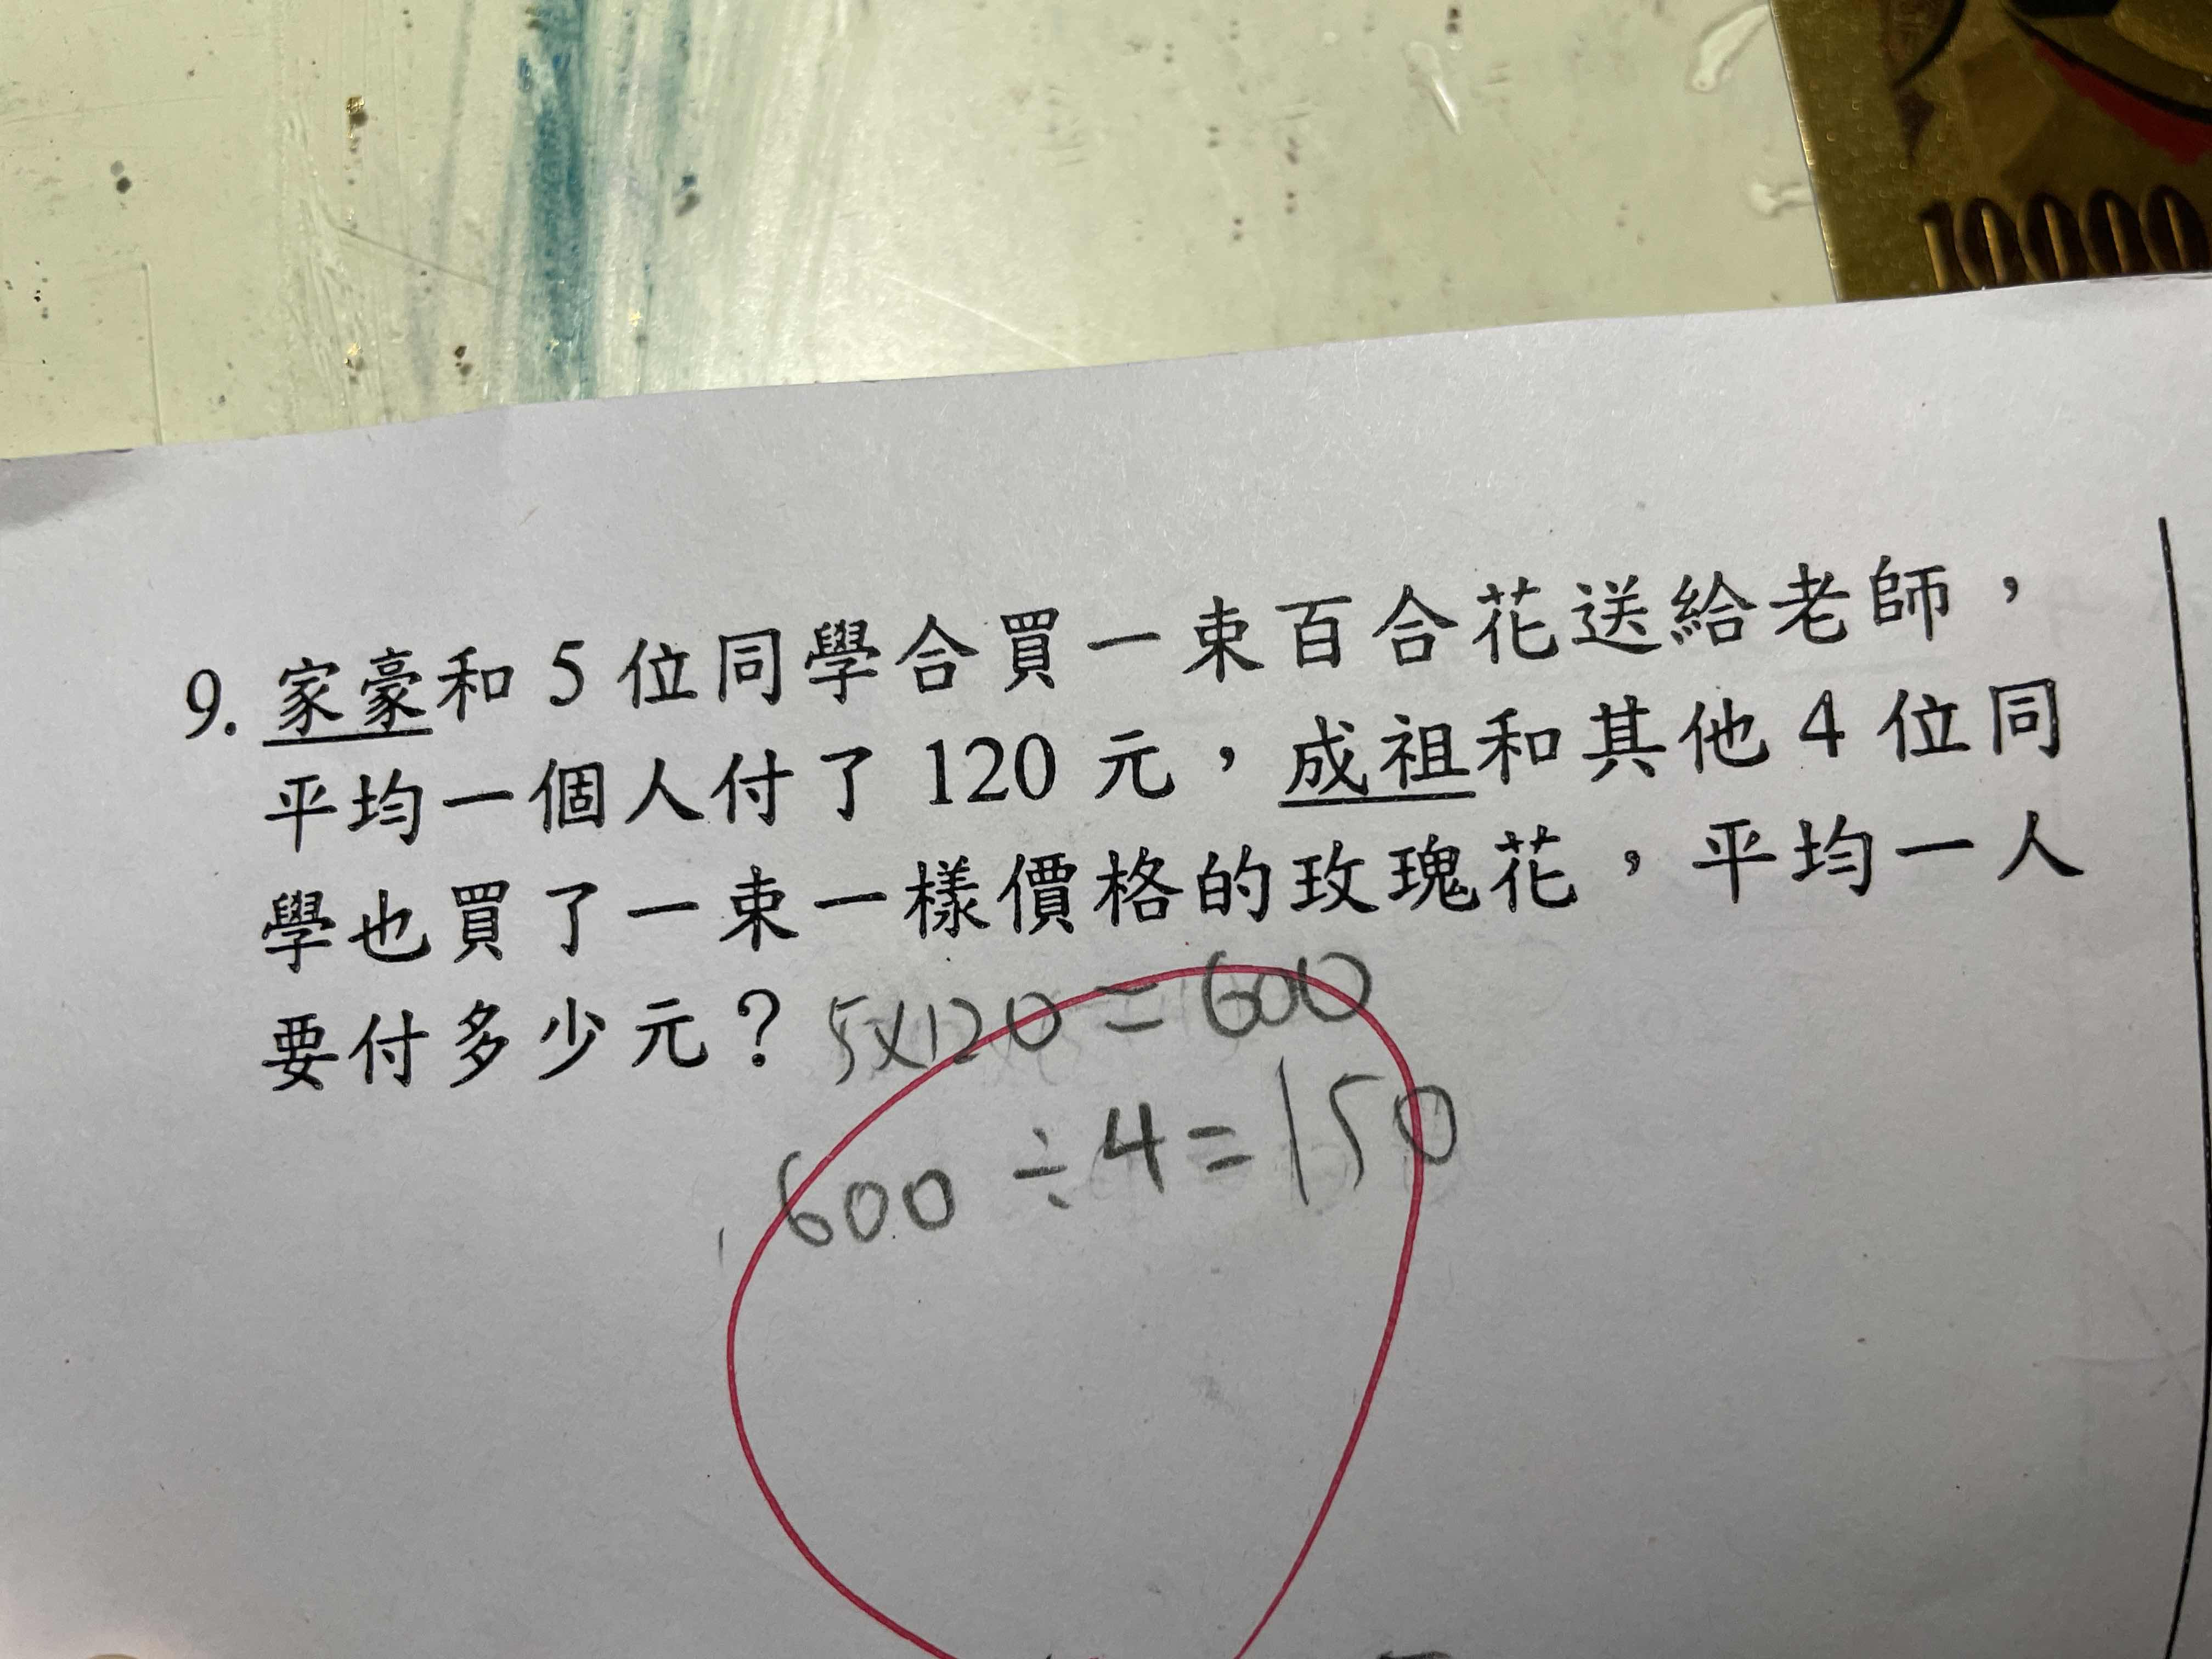 10000
9. 家豪和 5 位同學合買一束百合花送給老師，
平均一個人付了 120 元，成祖和其他 4 位同
學也買了一束一樣價格的玫瑰花，平均一人
要付多少元？ 5×120=600
600÷4=150